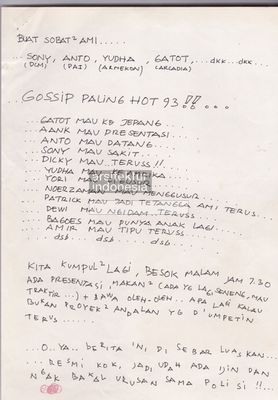 BUAT SOBAT² AMI.....
... SONY, ANTO, YUDHA, GATOT, ...dkk...dkk...
(DCM) (PAI) (ARMEKON) (ARCADIA)
... GOSSIP PALING HOT 93 !! ....
.... GATOT MAU KE JEPANG....
.... AANK MAU PRESENTASI....
.... ANTO MAU DATANG....
.... SONY MAU SAKIT....
.... DICKY MAU TERUSS !!....
.... YUDHA
.... YORI MAU
.... NOERZAMAN MAU MENGGUSUR...
.... PATRICK MAU JADI TETANGGA AMI TERUS...
.... DEWI MAU NGIDAM TERUSS....
.... BAGOES MAU PUNYA ANAK LAGI...
.... AMIR MAU TIPU TERUSS....
.... dsb... dsb... dsb...
arsitektur
indonesia
KITA KUMPUL² LAGI, BESOK MALAM JAM 7.30
ADA PRESENTASI, MAKAN² (ADA YG LAGI SENENG, MAU
TRAKTIR...) + BAWA OLEH-OLEH... APA LAGI KALAU
BUKAN PROYEK² ANDALAN YG D'UMPETIN
TERUS.......
...O..YA.. BERITA 'N, DI SEBAR LUASKAN...
... RESMI KOK, JADI UDAH ADA IJIN DAN
N'GAK BAKAL URUSAN SAMA POLISI !!...